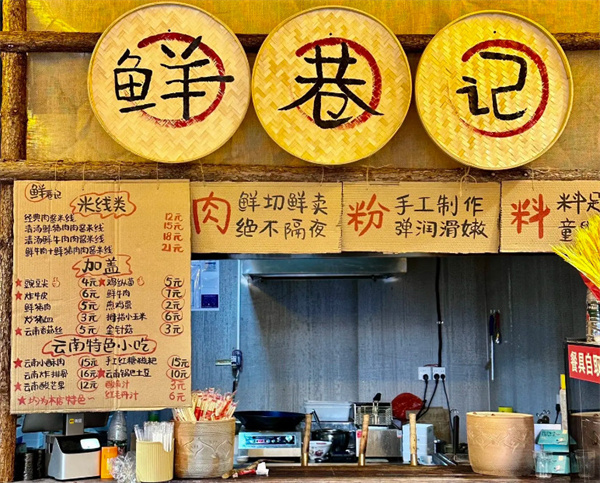 鲜巷记
鲜巷记
米线类
经典肉窝米线 12元
清汤鲜猪肉肉窝米线 15元
清汤鲜牛肉肉窝米线 18元
鲜牛肉+鲜猪肉肉窝米线 21元
加盖
★豌豆尖 4元 ★鸡枞菌 5元
★炸牛皮 6元 鲜牛肉 7元
鲜猪肉 5元 煎鸡蛋 2元
炒猪血 3元 拇指小玉米 6元
★云南香菇丝 5元 金针菇 3元
云南特色小吃
★云南小酥肉 15元 手工红糖糍粑 15元
云南炸排骨 16元 ★云南锅巴土豆 10元
★云南酸芒果 12元 3元
★均为本店特色~ 6元
肉 鲜切鲜卖
绝不隔夜
粉 手工制作
弹润滑嫩
料 料足
童
餐具自取